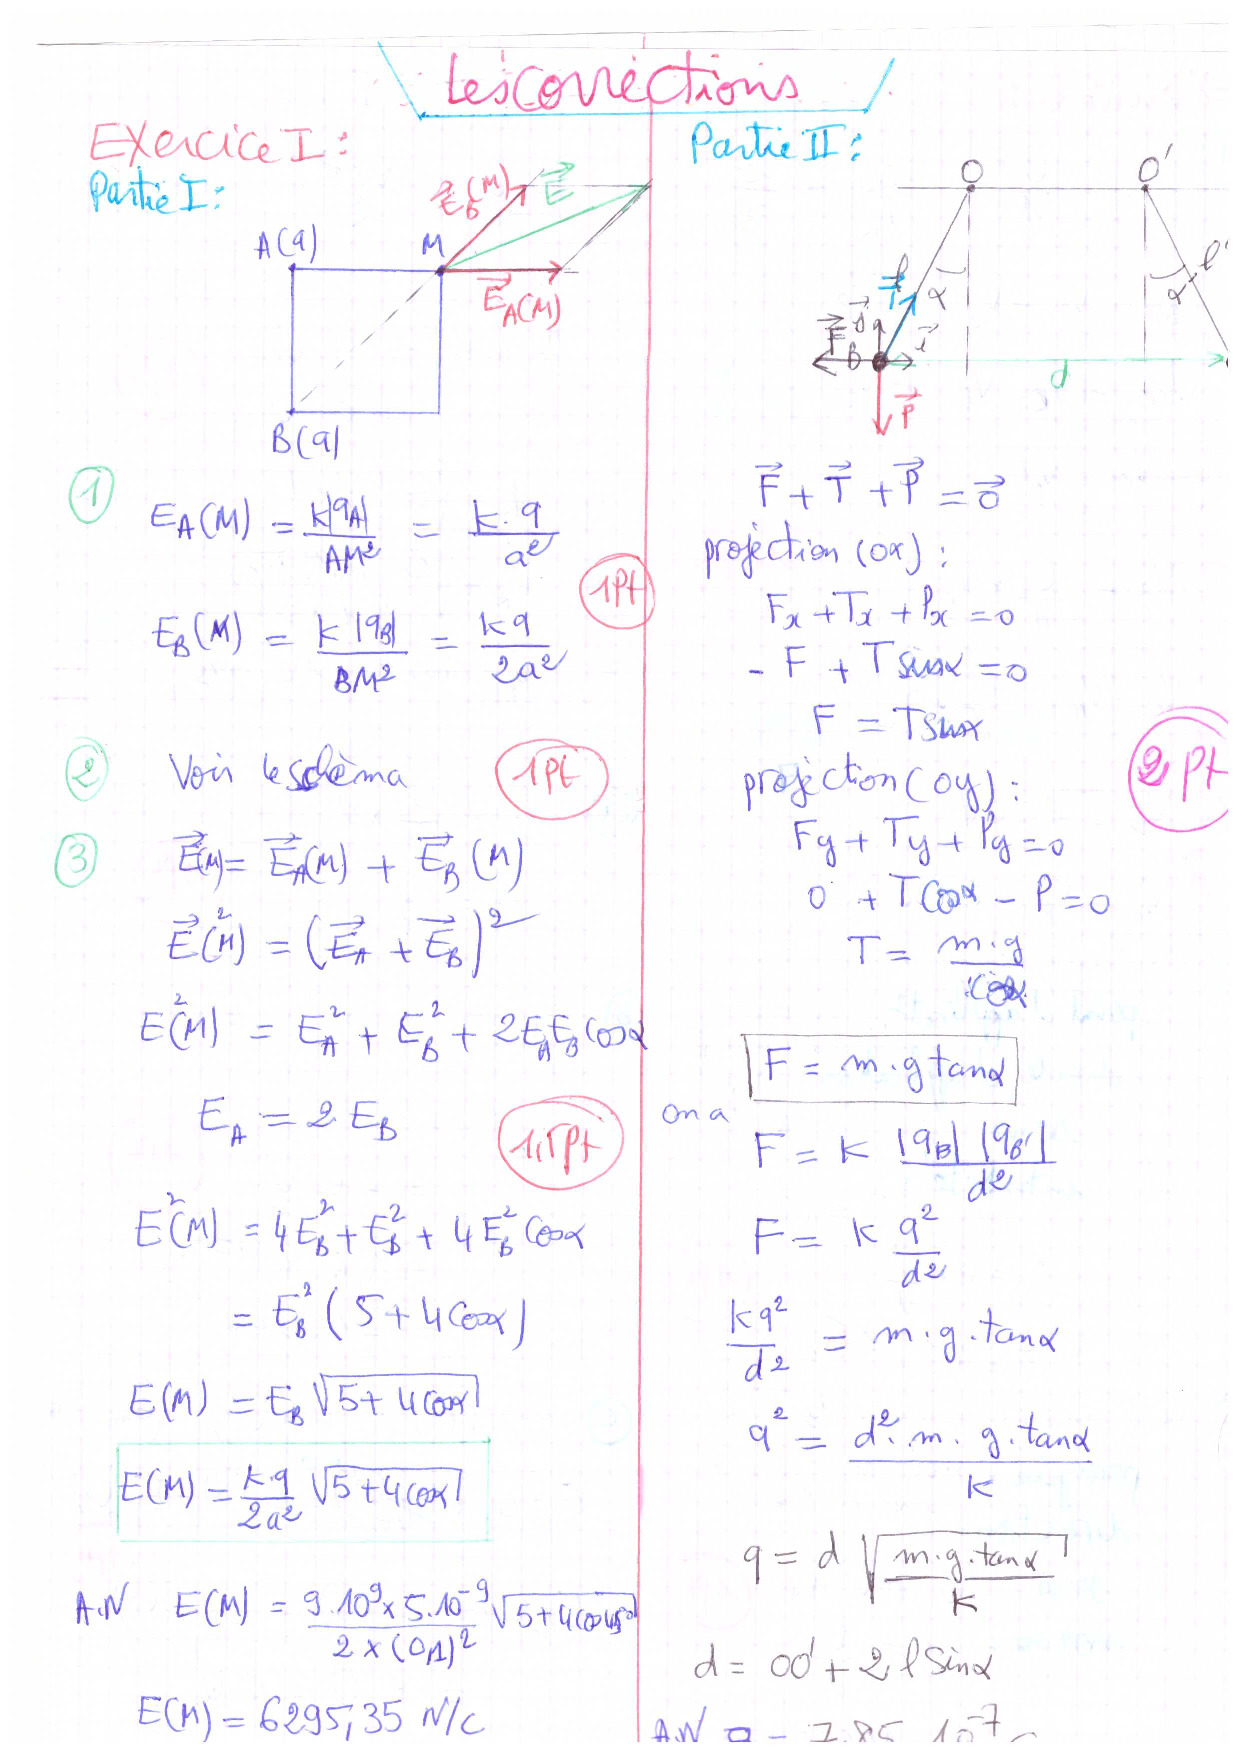 Les corrections
Exercice I :
Partie I :
E⃗_B(M)
E⃗
A(q)
M
E⃗_A(M)
B(q)
①
E_A(M) = k|q_A| / AM² = k.q / a²
1pt
E_B(M) = k|q_B| / BM² = kq / 2a²
② Voir le schèma
1pt
③ E⃗(M) = E⃗_A(M) + E⃗_B(M)
E⃗²(M) = (E⃗_A + E⃗_B)²
E²(M) = E_A² + E_B² + 2E_A E_B cosα
E_A = 2 E_B
1,5pt
E²(M) = 4E_B² + E_B² + 4E_B² cosα
= E_B² (5 + 4cosα)
E(M) = E_B √(5 + 4cosα)
E(M) = k.q / 2a² √(5 + 4cosα)
A.N E(M) = 9.10⁹ × 5.10⁻⁹ / 2 × (0,1)² √(5 + 4cos45°)
E(M) = 6295,35 N/C
Partie II :
O
O'
l
l'
α
α
T⃗
j⃗
F⃗
B
i⃗
d
P⃗
F⃗ + T⃗ + P⃗ = 0⃗
projèction (ox) :
Fx + Tx + Px = 0
- F + T sinα = 0
F = T sinα
projèction (oy) :
Fy + Ty + Py = 0
0 + T cosα - P = 0
2 pt
T = m.g / cosα
F = m.g tanα
on a
F = k |q_B| |q_B'| / d²
F = k q² / d²
kq² / d² = m.g.tanα
q² = d².m.g.tanα / k
q = d √(m.g.tanα / k)
d = OO' + 2 l sinα
A.N q = 7,85 10⁻⁷ C